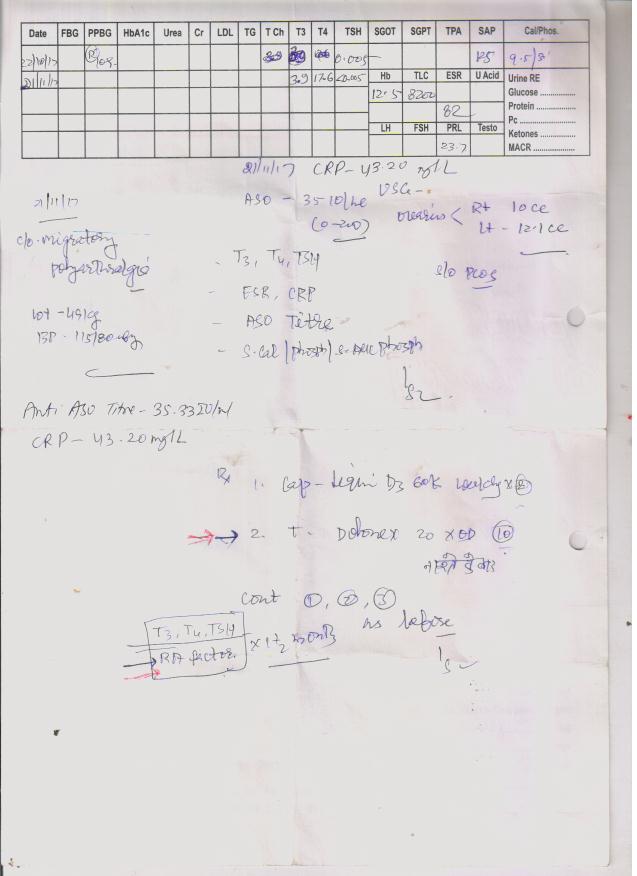 Date FBG PPBG HbA1c Urea Cr LDL TG T Ch T3 T4 TSH SGOT SGPT TPA SAP Cal/Phos.
0.005
21/11/17 3.9 17.6 <0.005 Hb TLC ESR U Acid Urine RE
12.5 8200 Glucose
Protein
82 Pc
LH FSH PRL Testo Ketones
23.7 MACR
21/11/17 CRP - 43.20 mg/L
21/11/17
ASO - 35 IU/ml USG -
(0-200) ovaries < Rt 10cc
Lt - 12.1cc
c/o migratory
polyarthralgia
- T3, T4, TSH s/o PCOS
- ESR, CRP
wt - 49kg - ASO Titre
BP - 115/80
- S.Cal / phosph / S. Alk phosph
Anti ASO Titre - 35.33 IU/ml
CRP - 43.20 mg/L
Rx 1. Cap - D3 60K weekly x
2. T. Dolonex 20 x OD 10
Cont 1, 2, 3
as before
T3, T4, TSH
RA factor x 1½ month